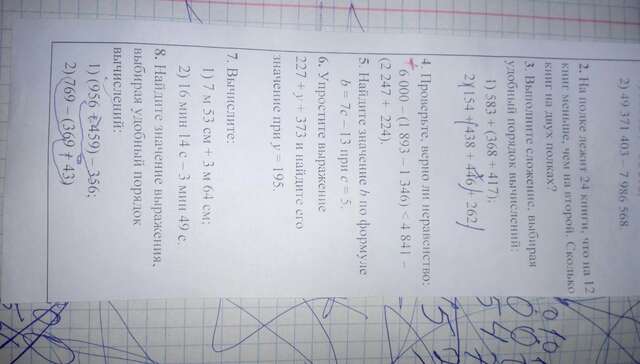 2) 49 371 403 – 7 986 568.
2. На полке лежит 24 книги, что на 12
книг меньше, чем на второй. Сколько
книг на двух полках?
3. Выполните сложение, выбирая
удобный порядок вычислений:
1) 583 + (368 + 417);
2) (154 + (438 + 446) + 262)
4. Проверьте, верно ли неравенство:
6 000 – (1 893 – 1 346) < 4 841 –
(2 247 + 224).
5. Найдите значение b по формуле
b = 7c – 13 при c = 5.
6. Упростите выражение
227 + y + 373 и найдите его
значение при y = 195.
7. Вычислите:
1) 7 м 53 см + 3 м 64 см;
2) 16 мин 14 с – 3 мин 49 с.
8. Найдите значение выражения,
выбирая удобный порядок
вычислений:
1) (956 + 459) – 356;
2) 769 – (369 + 43)